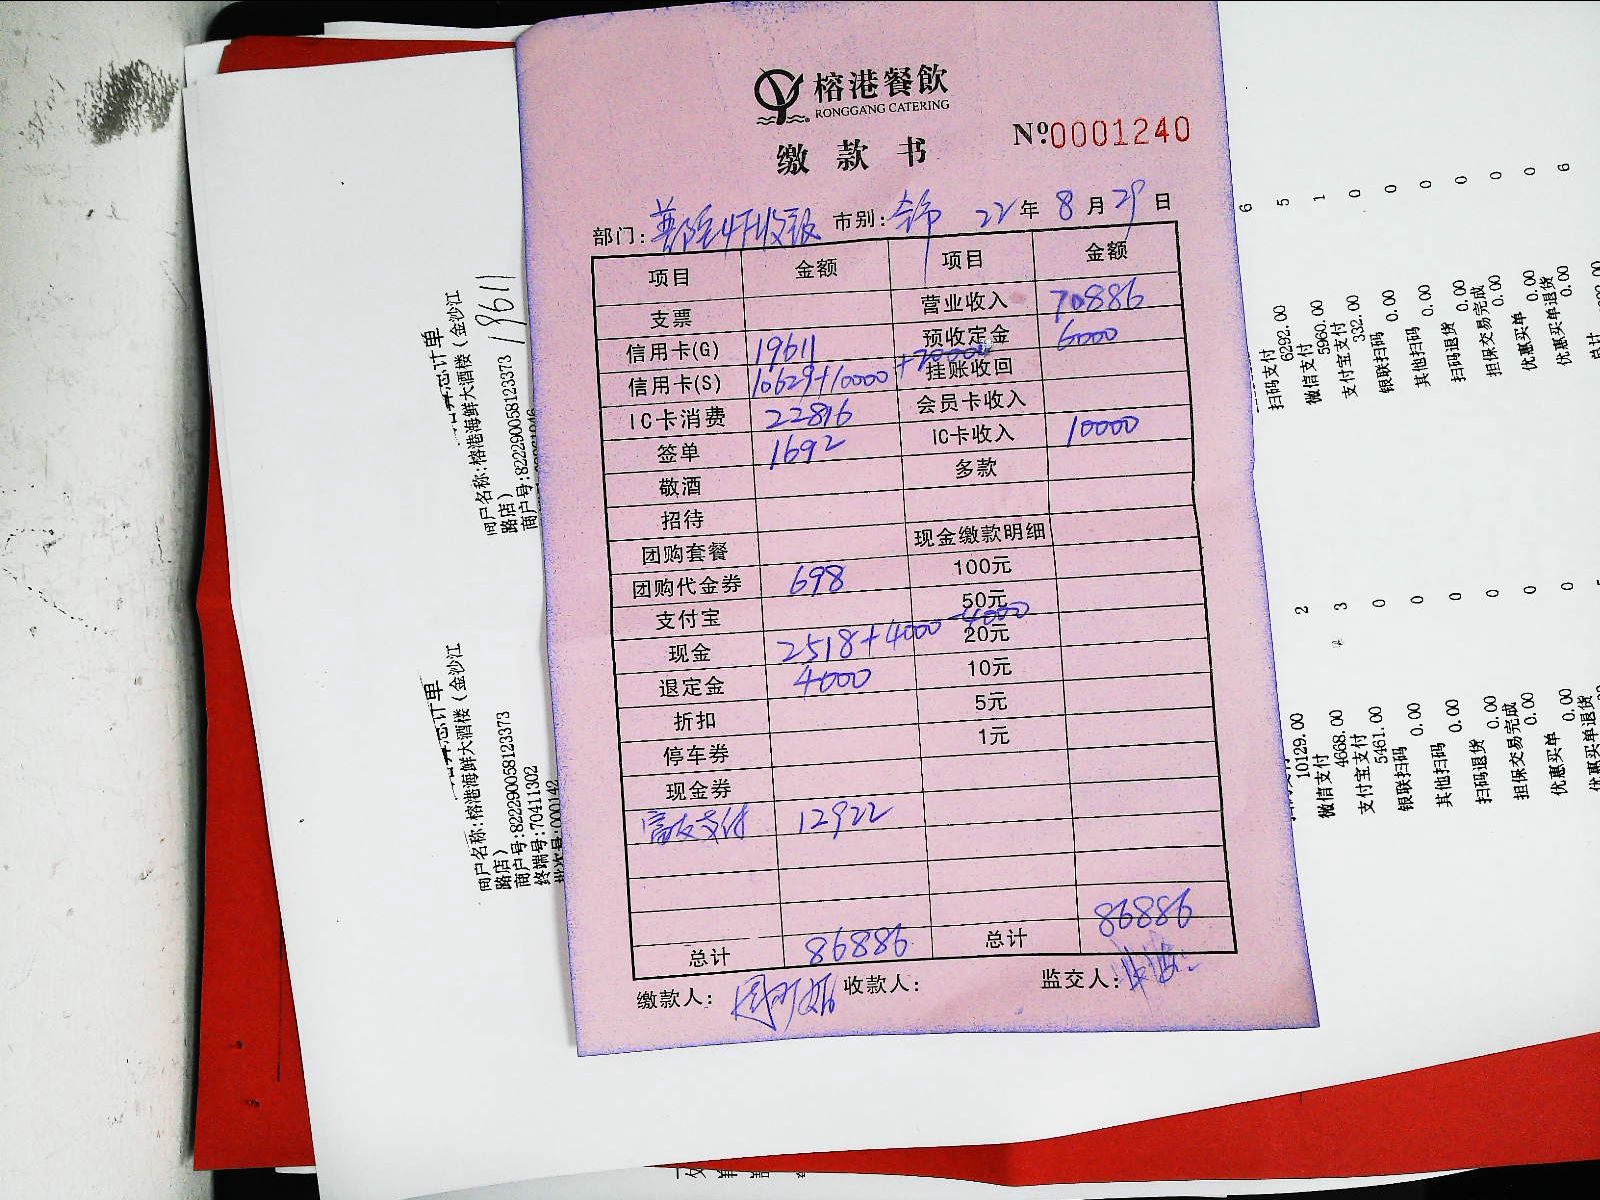 榕港餐飲
RONGGANG CATERING
缴款书
Nº0001240
部门: 市别: 22年8月29日
项目 金额 项目 金额
支票 营业收入 70886
信用卡(G) 19611 预收定金 6000
信用卡(S) 10629+10000+2000 挂账收回
IC卡消费 22816 会员卡收入
签单 1692 IC卡收入 10000
敬酒 多款
招待
团购套餐 现金缴款明细
团购代金券 698 100元
支付宝 50元
现金 2518+4000-4000 20元
退定金 4000 10元
折扣 5元
停车券 1元
现金券
支付 12922
总计 86886 总计 86886
缴款人: 收款人: 监交人:
总计单
商户名称:榕港海鲜大酒楼(金沙江
路店)
商户号:822290058123373
19611
总计单
商户名称:榕港海鲜大酒楼(金沙江
路店)
商户号:822290058123373
终端号:70411302
批次号:000142
6
扫码支付 5
6292.00
微信支付 1
5960.00
支付宝支付 0
332.00
银联扫码 0
0.00
其他扫码 0
0.00
扫码退货 0
0.00
担保交易完成 0
0.00
优惠买单 0
0.00
优惠买单退货 6
0.00
总计
10129.00
微信支付 2
4668.00
支付宝支付 3
5461.00
银联扫码 0
0.00
其他扫码 0
0.00
扫码退货 0
0.00
担保交易完成 0
0.00
优惠买单 0
0.00
优惠买单退货 0